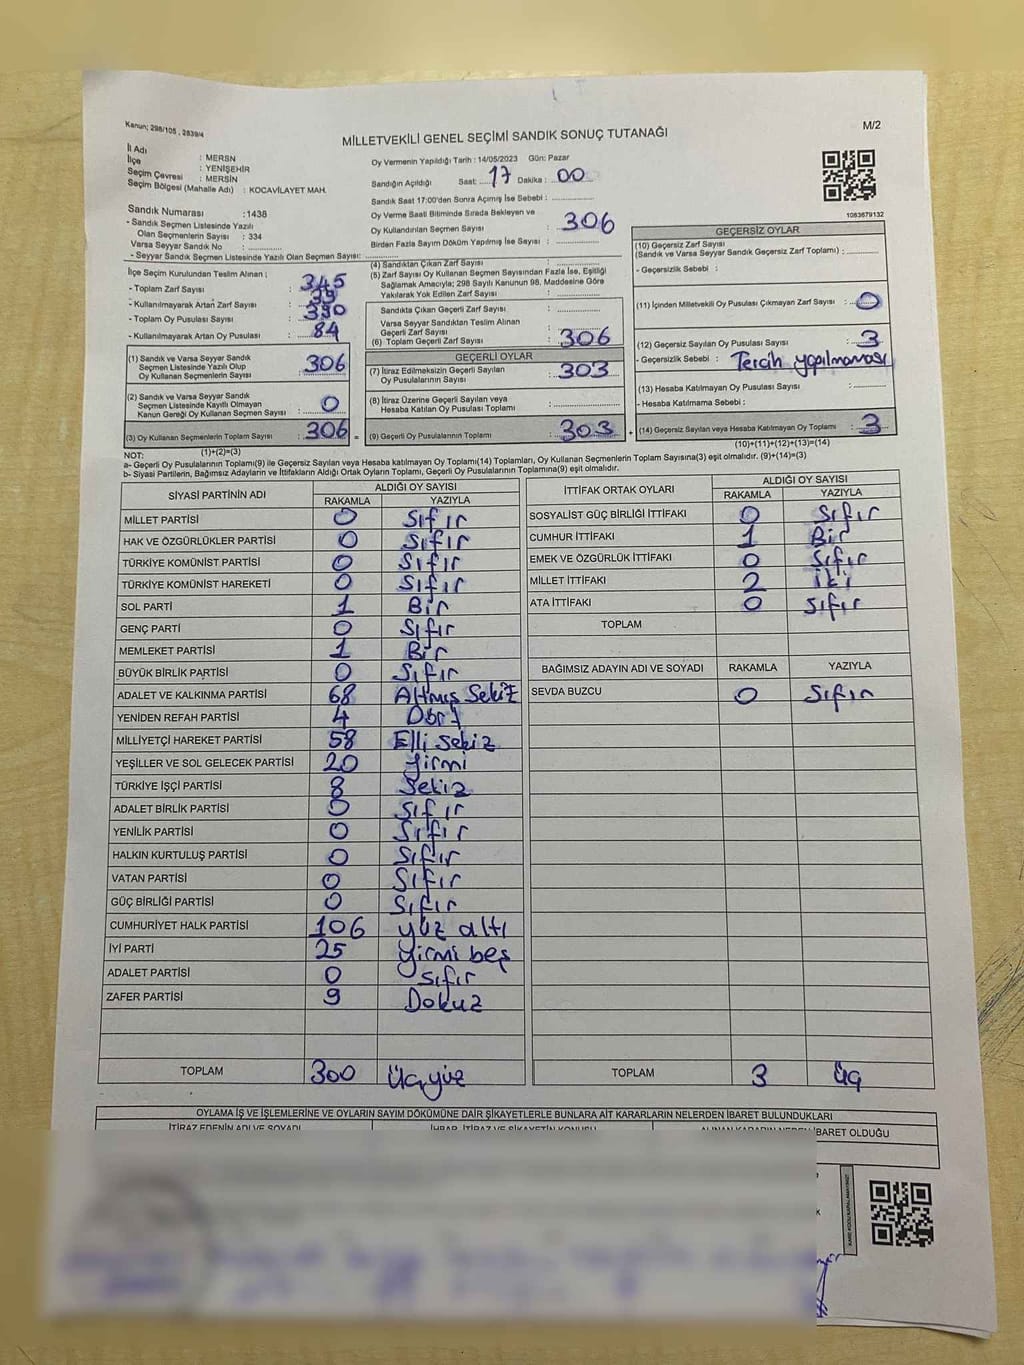 Kanun; 298/105 , 2839/4
MİLLETVEKİLİ GENEL SEÇİMİ SANDIK SONUÇ TUTANAĞI
M/2
İl Adı : MERSN
İlçe : YENİŞEHİR
Seçim Çevresi : MERSİN
Seçim Bölgesi (Mahalle Adı) : KOCAVİLAYET MAH.
Oy Vermenin Yapıldığı Tarih : 14/05/2023 Gün: Pazar
Sandığın Açıldığı Saat: 17 Dakika : 00
Sandık Saat 17:00'den Sonra Açımış İse Sebebi :
Oy Verme Saati Bitiminde Sırada Bekleyen ve
Oy Kullandırılan Seçmen Sayısı : 306
Birden Fazla Sayım Döküm Yapılmış İse Sayısı :
1083679132
Sandık Numarası :1438
- Sandık Seçmen Listesinde Yazılı
Olan Seçmenlerin Sayısı : 334
Varsa Seyyar Sandık No :
- Seyyar Sandık Seçmen Listesinde Yazılı Olan Seçmen Sayısı:
İlçe Seçim Kurulundan Teslim Alınan ;
- Toplam Zarf Sayısı : 345
- Kullanılmayarak Artan Zarf Sayısı : 39
- Toplam Oy Pusulası Sayısı : 390
- Kullanılmayarak Artan Oy Pusulası : 84
(1) Sandık ve Varsa Seyyar Sandık
Seçmen Listesinde Yazılı Olup
Oy Kullanan Seçmenlerin Sayısı : 306
(2) Sandık ve Varsa Seyyar Sandık
Seçmen Listesinde Kayıtlı Olmayan
Kanun Gereği Oy Kullanan Seçmen Sayısı : 0
(3) Oy Kullanan Seçmenlerin Toplam Sayısı : 306 =
(1)+(2)=(3)
(4) Sandıktan Çıkan Zarf Sayısı :
(5) Zarf Sayısı Oy Kullanan Seçmen Sayısından Fazla İse, Eşitliği
Sağlamak Amacıyla; 298 Sayılı Kanunun 98. Maddesine Göre
Yakılarak Yok Edilen Zarf Sayısı :
Sandıkta Çıkan Geçerli Zarf Sayısı :
Varsa Seyyar Sandıktan Teslim Alınan
Geçerli Zarf Sayısı :
(6) Toplam Geçerli Zarf Sayısı : 306
GEÇERLİ OYLAR
(7) İtiraz Edilmeksizin Geçerli Sayılan
Oy Pusulalarının Sayısı : 303
(8) İtiraz Üzerine Geçerli Sayılan veya
Hesaba Katılan Oy Pusulası Toplamı :
(9) Geçerli Oy Pusulalarının Toplamı : 303 +
GEÇERSİZ OYLAR
(10) Geçersiz Zarf Sayısı
(Sandık ve Varsa Seyyar Sandık Geçersiz Zarf Toplamı) :
- Geçersizlik Sebebi :
(11) İçinden Milletvekili Oy Pusulası Çıkmayan Zarf Sayısı : 0
(12) Geçersiz Sayılan Oy Pusulası Sayısı : 3
- Geçersizlik Sebebi : Tercih yapılmaması
(13) Hesaba Katılmayan Oy Pusulası Sayısı :
- Hesaba Katılmama Sebebi :
(14) Geçersiz Sayılan veya Hesaba Katılmayan Oy Toplamı : 3
(10)+(11)+(12)+(13)=(14)
NOT:
a- Geçerli Oy Pusulalarının Toplamı(9) ile Geçersiz Sayılan veya Hesaba katılmayan Oy Toplamı(14) Toplamları, Oy Kullanan Seçmenlerin Toplam Sayısına(3) eşit olmalıdır. (9)+(14)=(3)
b- Siyasi Partilerin, Bağımsız Adayların ve İttifakların Aldığı Oyların Toplamı, Geçerli Oy Pusulalarının Toplamına(9) eşit olmalıdır.
SİYASİ PARTİNİN ADI ALDIĞI OY SAYISI
RAKAMLA YAZIYLA
MİLLET PARTİSİ 0 Sıfır
HAK VE ÖZGÜRLÜKLER PARTİSİ 0 Sıfır
TÜRKİYE KOMÜNİST PARTİSİ 0 Sıfır
TÜRKİYE KOMÜNİST HAREKETİ 0 Sıfır
SOL PARTİ 1 Bir
GENÇ PARTİ 0 Sıfır
MEMLEKET PARTİSİ 1 Bir
BÜYÜK BİRLİK PARTİSİ 0 Sıfır
ADALET VE KALKINMA PARTİSİ 68 Altmış Sekiz
YENİDEN REFAH PARTİSİ 4 Dört
MİLLİYETÇİ HAREKET PARTİSİ 58 Elli Sekiz
YEŞİLLER VE SOL GELECEK PARTİSİ 20 Yirmi
TÜRKİYE İŞÇİ PARTİSİ 8 Sekiz
ADALET BİRLİK PARTİSİ 0 Sıfır
YENİLİK PARTİSİ 0 Sıfır
HALKIN KURTULUŞ PARTİSİ 0 Sıfır
VATAN PARTİSİ 0 Sıfır
GÜÇ BİRLİĞİ PARTİSİ 0 Sıfır
CUMHURİYET HALK PARTİSİ 106 yüz altı
İYİ PARTİ 25 Yirmi beş
ADALET PARTİSİ 0 sıfır
ZAFER PARTİSİ 9 Dokuz
TOPLAM 300 Üçyüz
İTTİFAK ORTAK OYLARI ALDIĞI OY SAYISI
RAKAMLA YAZIYLA
SOSYALİST GÜÇ BİRLİĞİ İTTİFAKI 0 Sıfır
CUMHUR İTTİFAKI 1 Bir
EMEK VE ÖZGÜRLÜK İTTİFAKI 0 Sıfır
MİLLET İTTİFAKI 2 iki
ATA İTTİFAKI 0 sıfır
TOPLAM
BAĞIMSIZ ADAYIN ADI VE SOYADI RAKAMLA YAZIYLA
SEVDA BUZCU 0 Sıfır
TOPLAM 3 üç
OYLAMA İŞ VE İŞLEMLERİNE VE OYLARIN SAYIM DÖKÜMÜNE DAİR ŞİKAYETLERLE BUNLARA AİT KARARLARIN NELERDEN İBARET BULUNDUKLARI
İTİRAZ EDENİN ADI VE SOYADI İHBAR, İTİRAZ VE ŞİKAYETİN KONUSU ALINAN KARARIN NEDEN İBARET OLDUĞU